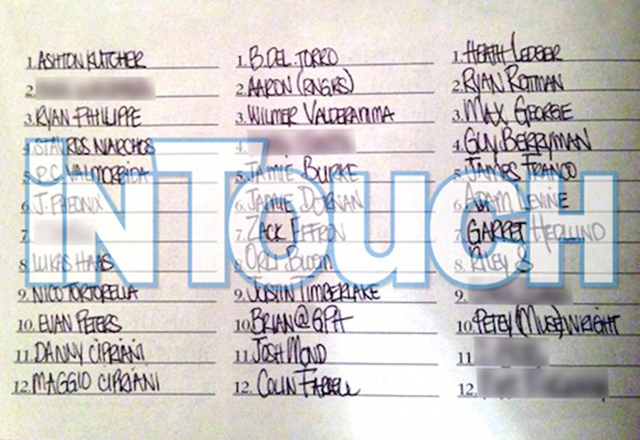 1. ASHTON KUTCHER
2.
3. RYAN PHILIPPE
4. STAVROS NIARCHOS
5. P.C. VALMORBIDA
6. J. PHEONIX
7.
8. LUKAS HAAS
9. NICO TORTORELLA
10. EVAN PETERS
11. DANNY CIPRIANI
12. MAGGIO CIPRIANI
1. B. DEL TORRO
2. AARON (RNGRS)
3. WILMER VALDERAMMA
4.
5. JAMIE BURKE
6. JAMIE DORNAN
7. ZACK EFFRON
8. ORLY BLOOM
9. JUSTIN TIMBERLAKE
10. BRIAN @ GPH
11. JOSH MOND
12. COLIN FARRELL
1. HEATH LEDGER
2. RYAN ROTTMAN
3. MAX GEORGE
4. GUY BERRYMAN
5. JAMES FRANCO
6. ADAM LEVINE
7. GARRET HEDLUND
8. RILEY S
9.
10. PETEY (MUSE) WRIGHT
11.
12.
INTOUCH